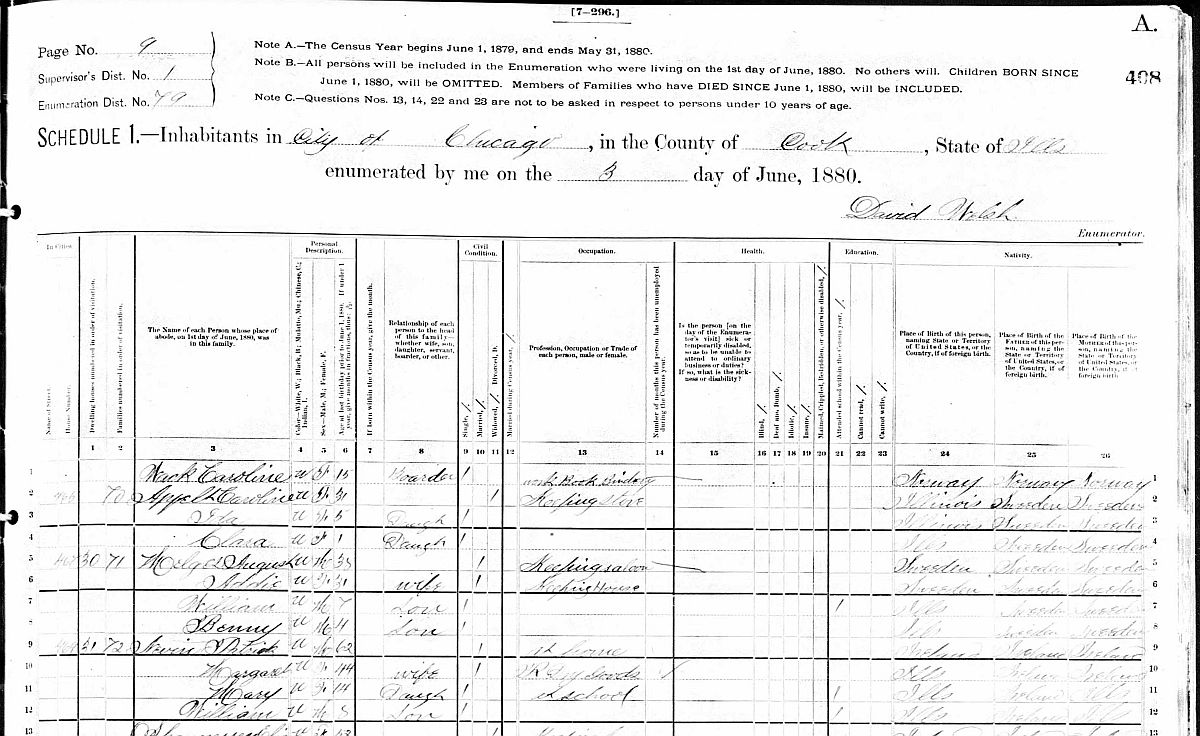 [7-296.]
A.
Page No. 9
Supervisor's Dist. No. 1
Enumeration Dist. No. 79
Note A.—The Census Year begins June 1, 1879, and ends May 31, 1880.
Note B.—All persons will be included in the Enumeration who were living on the 1st day of June, 1880. No others will. Children BORN SINCE
June 1, 1880, will be OMITTED. Members of Families who have DIED SINCE June 1, 1880, will be INCLUDED.
Note C.—Questions Nos. 13, 14, 22 and 23 are not to be asked in respect to persons under 10 years of age.
408
SCHEDULE 1.—Inhabitants in City of Chicago, in the County of Cook, State of Ills
enumerated by me on the 3 day of June, 1880.
David Welsh
Enumerator.
In Cities. Personal Description. Civil Condition. Occupation. Health. Education. Nativity.
Name of Street. House Number.
Dwelling houses numbered in order of visitation.
Families numbered in order of visitation.
The Name of each Person whose place of abode, on 1st day of June, 1880, was in this family.
Color—White, W.; Black, B.; Mulatto, Mu.; Chinese, C.; Indian, I.
Sex—Male, M.; Female, F.
Age at last birthday prior to June 1, 1880. If under 1 year, give months in fractions, thus: 3/12
If born within the Census year, give the month.
Relationship of each person to the head of this family—whether wife, son, daughter, servant, boarder, or other.
Single, /.
Married, /.
Widowed, /. Divorced, D.
Married during Census year, /.
Profession, Occupation or Trade of each person, male or female.
Number of months this person has been unemployed during the Census year.
Is the person [on the day of the Enumerator's visit] sick or temporarily disabled, so as to be unable to attend to ordinary business or duties? If so, what is the sickness or disability?
Blind, /.
Deaf and Dumb, /.
Idiotic, /.
Insane, /.
Maimed, Crippled, Bedridden, or otherwise disabled, /.
Attended school within the Census year, /.
Cannot read, /.
Cannot write, /.
Place of Birth of this person, naming State or Territory of United States, or the Country, if of foreign birth.
Place of Birth of the Father of this person, naming the State or Territory of United States, or the Country, if of foreign birth.
Place of Birth of the Mother of this person, naming the State or Territory of United States, or the Country, if of foreign birth.
1 2 3 4 5 6 7 8 9 10 11 12 13 14 15 16 17 18 19 20 21 22 23 24 25 26
1 Caroline W F 15 Boarder / work Book Bindery Norway Norway Norway 1
2 70 Caroline W F 31 / Keeping store Illinois Sweeden Sweeden 2
3 Ida W F 5 Daugh / Illinois Sweeden Sweeden 3
4 Clara W F 1 Daugh / Ills Sweeden Sweeden 4
5 30 71 August W M / Keeping saloon Sweeden Sweeden Sweeden 5
6 Addie W F 31 wife / Keeping House Sweeden Sweeden Sweeden 6
7 William W M 7 Son / / Ills Sweeden Sweeden 7
8 Benny W M 4 Son / Ills Sweeden Sweeden 8
9 31 72 Patrick W M 62 / at home Ireland Ireland Ireland 9
10 Margaret W F 44 wife / R Dry Goods Ills Ireland 10
11 Mary W F 14 Daugh / at school / Ills Ireland Ills 11
12 William W M 8 Son / / Ills Ireland Ills 12
13 13